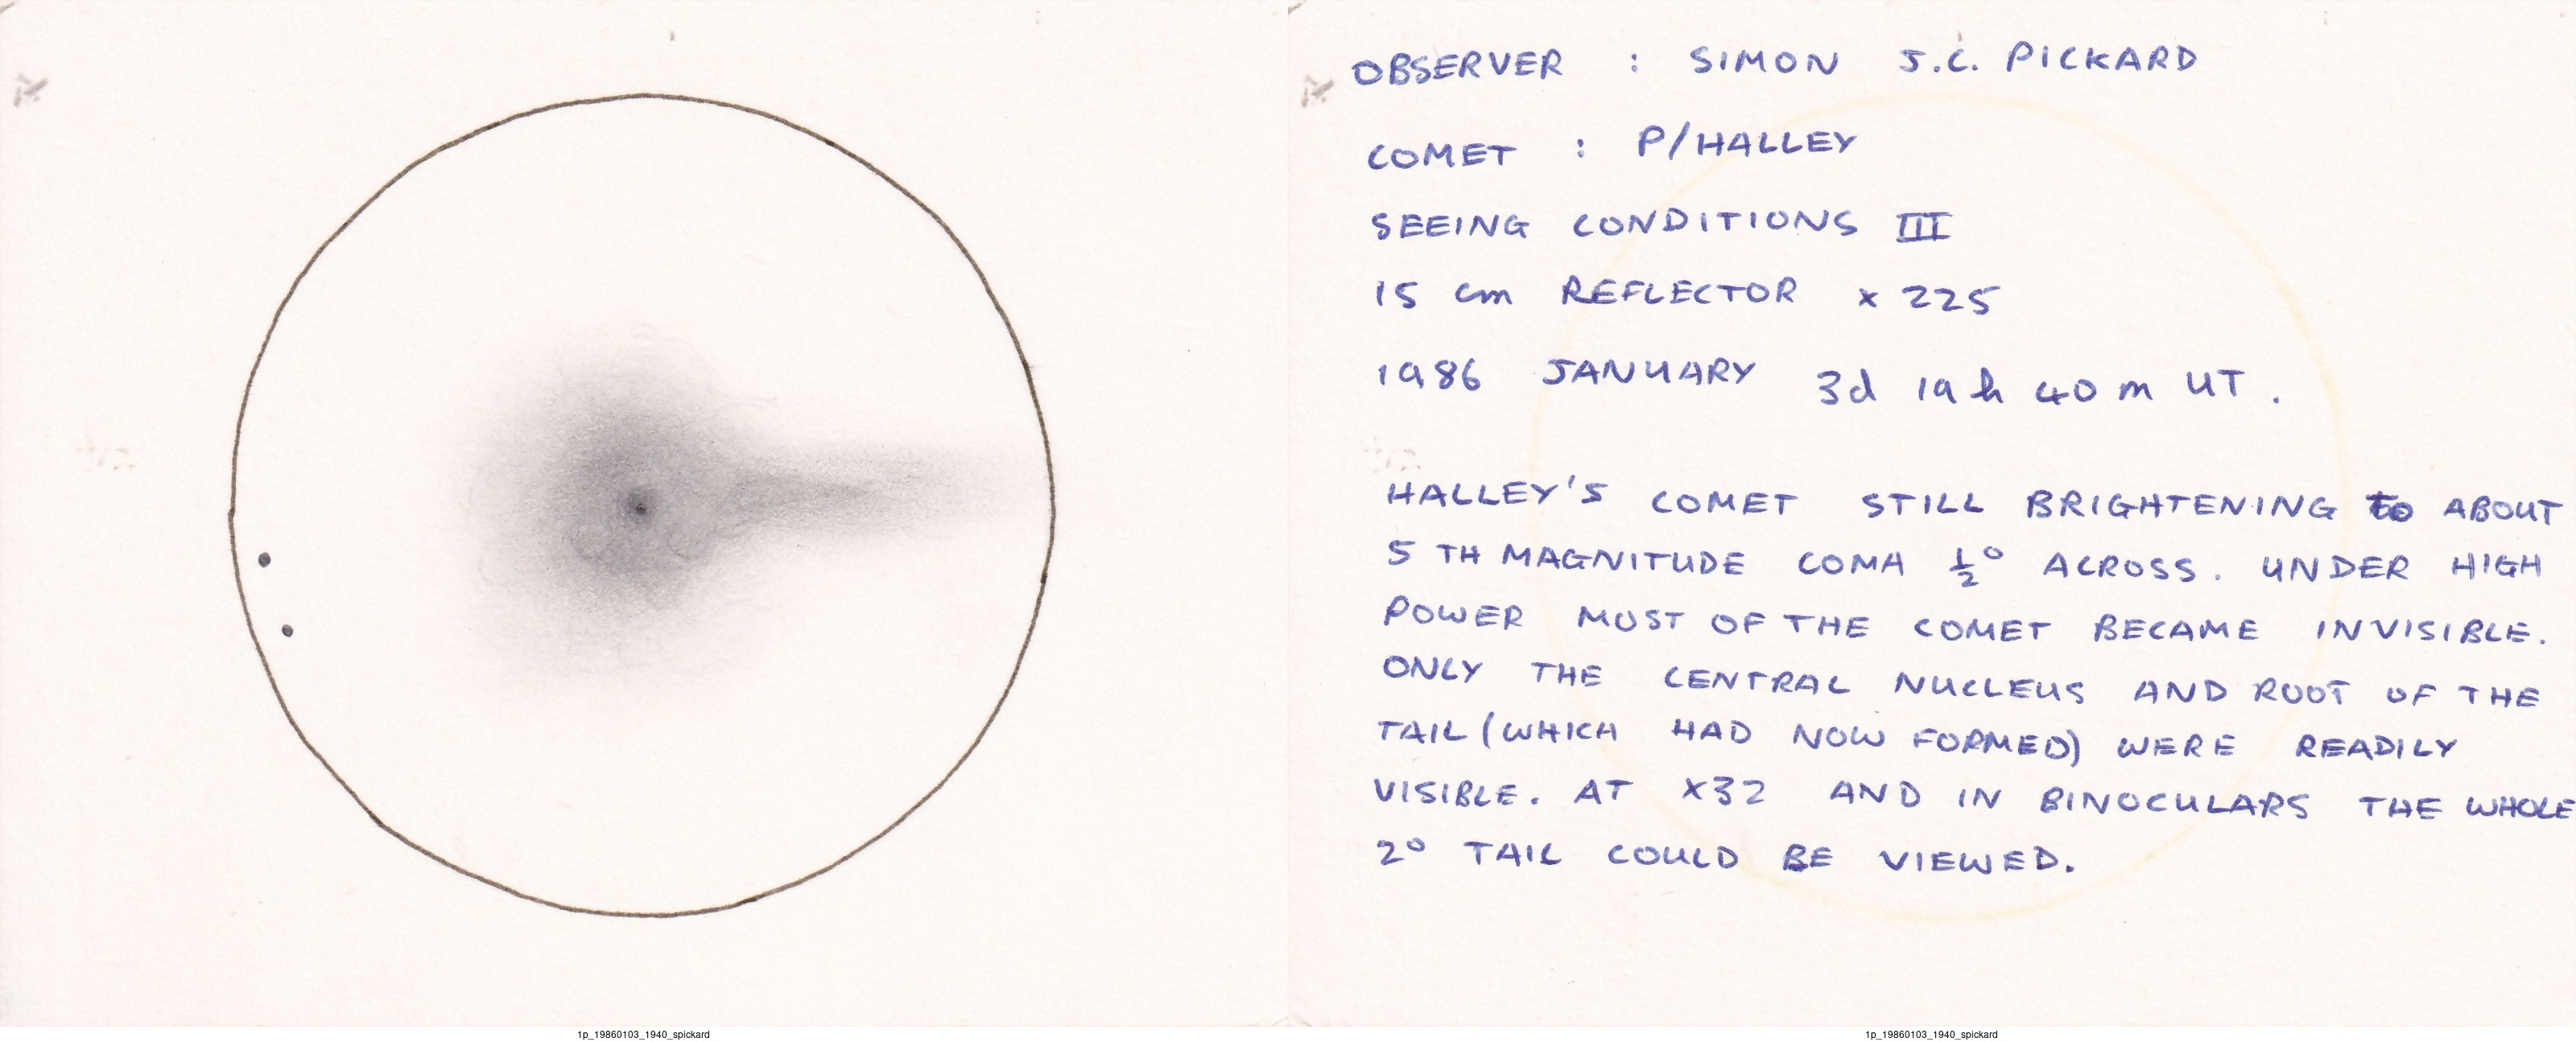 OBSERVER : SIMON J.C. PICKARD
COMET : P/HALLEY
SEEING CONDITIONS III
15 cm REFLECTOR x 225
1986 JANUARY 3d 19h 40m UT.
HALLEY'S COMET STILL BRIGHTENING to ABOUT
5TH MAGNITUDE COMA ½° ACROSS. UNDER HIGH
POWER MOST OF THE COMET BECAME INVISIBLE.
ONLY THE CENTRAL NUCLEUS AND ROOT OF THE
TAIL (WHICH HAD NOW FORMED) WERE READILY
VISIBLE. AT x32 AND IN BINOCULARS THE WHOLE
2° TAIL COULD BE VIEWED.
1p_19860103_1940_spickard
1p_19860103_1940_spickard